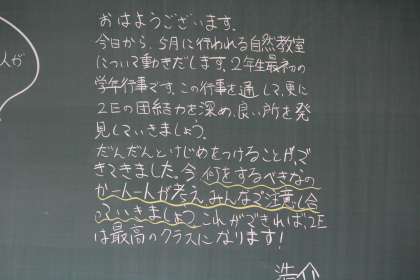 人が
おはようございます。
今日から、5月に行われる自然教室
について動きだします。2年生最初の
学年行事です。この行事を通して、更に
2Eの団結力を深め、良い所を発
見していきましょう。
だんだんとけじめをつけることが、で
きてきました。今何をするべきなの
か一人一人が考え、みんなで注意し合
っていきましょう。これができれば、2E
は最高のクラスになります!